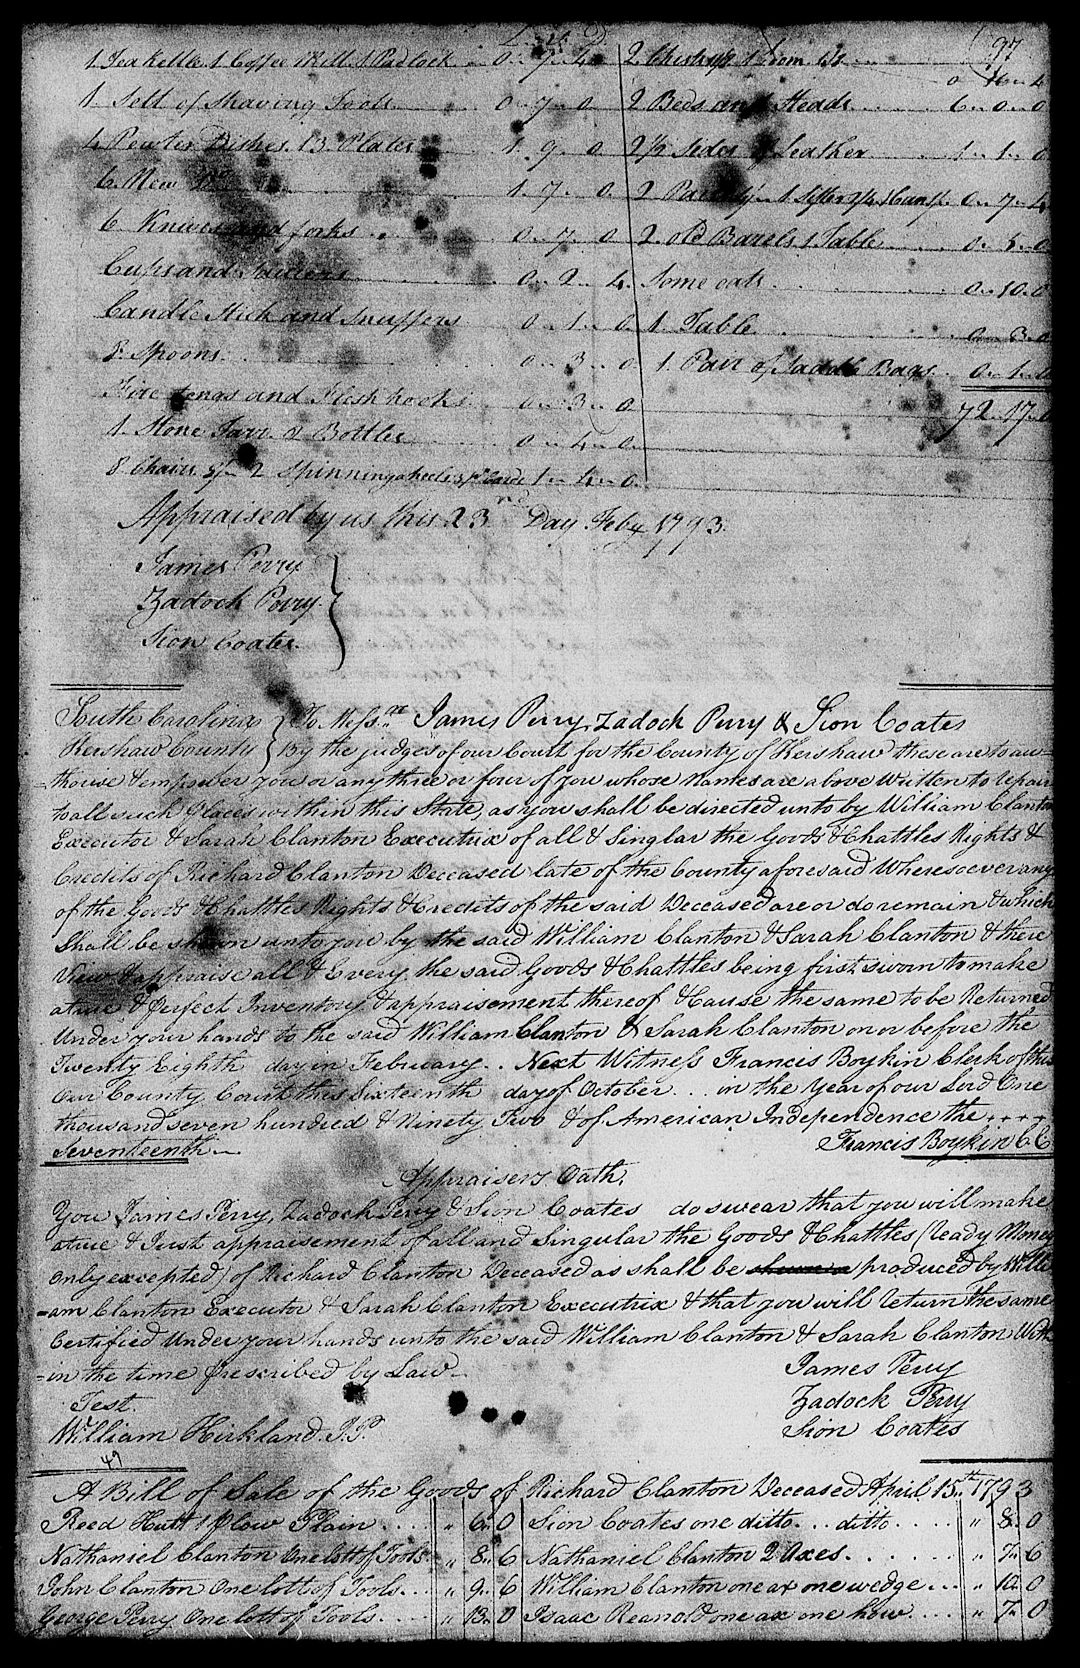 97
£ S D
1 Teakettle 1 Coffee Mill 1 Padlock 0 .. 7 .. 4
1 Sett of Shaving Tools 0 .. 7 .. 0
4 Pewter Dishes 13 Plates 1 .. 9 .. 0
6 New 1 .. 7 .. 0
6 Knives and forks 0 .. 7 .. 0
Cups and Saucers 0 .. 2 .. 4
Candle Stick and Snuffers 0 .. 1 .. 0
8 Spoons 0 .. 3 .. 0
Fire tongs and Flesh hooks 0 .. 3 .. 0
1 Stone Jarr 2 Bottles 0 .. 4 .. 0
8 Chairs 2 Spinning wheels 1 .. 4 .. 0
2 Chests 1 Loom
2 Beds and Steads 6 .. 0 .. 0
2 1/2 Sides of Leather 1 .. 1 .. 0
2 1 Sifter 0 .. 7 .. 4
2 old Barels 1 Table 0 .. 5 .. 0
Some oats 0 .. 10 .. 0
1 Table 0 .. 3 .. 0
1 Pair of Saddle Bags 0 .. 1 .. 0
72 .. 17 .. 0
Appraised by us this 23rd Day Feby 1793
James Perry
Zadock Perry
Sion Coates
South Carolina } To Messrs James Perry, Zadock Perry & Sion Coates
Kershaw County } By the judges of our Court for the County of Kershaw these are to au=
=thouse & empower you or any three or four of you whose Names are above Written to repair
to all such Places within this State, as you shall be directed unto by William Clanton
Executor & Sarah Clanton Executrix of all & Singlar the Goods & Chattles Rights &
Credits of Richard Clanton Deceased late of the County aforesaid Wheresoever any
of the Goods & Chattles Rights & Credits of the said Deceased are or do remain & which
Shall be shewn unto you by the said William Clanton & Sarah Clanton & there
View & appraise all & Every the said Goods & Chattles being first sworn to make
a true & Perfect Inventory & appraisement thereof & Cause the same to be Returned
Under your hands to the said William Clanton & Sarah Clanton on or before the
Twenty Eighth day in February .. Next Witness Francis Boykin Clerk of this
Our County Court this Sixteenth day of October ... in the Year of our Lord One
thousand seven hundred & Ninety Two & of American Independence the ....
Seventeenth Francis Boykin CC
Appraisers Oath.
You James Perry, Zadock Perry & Sion Coates do swear that you will make
a true & Just appraisement of all and Singular the Goods & Chattles (Ready Money
Only excepted) of Richard Clanton Deceased as shall be shewn produced by Willi
=am Clanton Executor & Sarah Clanton Executrix & that you will return the same
Certified Under your hands unto the said William Clanton & Sarah Clanton With
=in the time Prescribed by Law
Test. James Perry
William Kirkland. J.P. Zadock Perry
Sion Coates
49
A Bill of Sale of the Goods of Richard Clanton Deceased April 15th 1793
Reed Hutt 1 Plow Plain .... " 6 .. 0 Sion Coates one ditto ... ditto .... " 8 .. 0
Nathaniel Clanton One lott of Tools " 8 .. 6 Nathaniel Clanton 2 Axes ...... " 7 .. 6
John Clanton One lott of Tools ... " 9 .. 6 William Clanton one ax one wedge ... " 10 .. 0
George Perry One lott of Tools .... " 13 .. 0 Isaac Reanold one ax one how .... " 7 .. 0